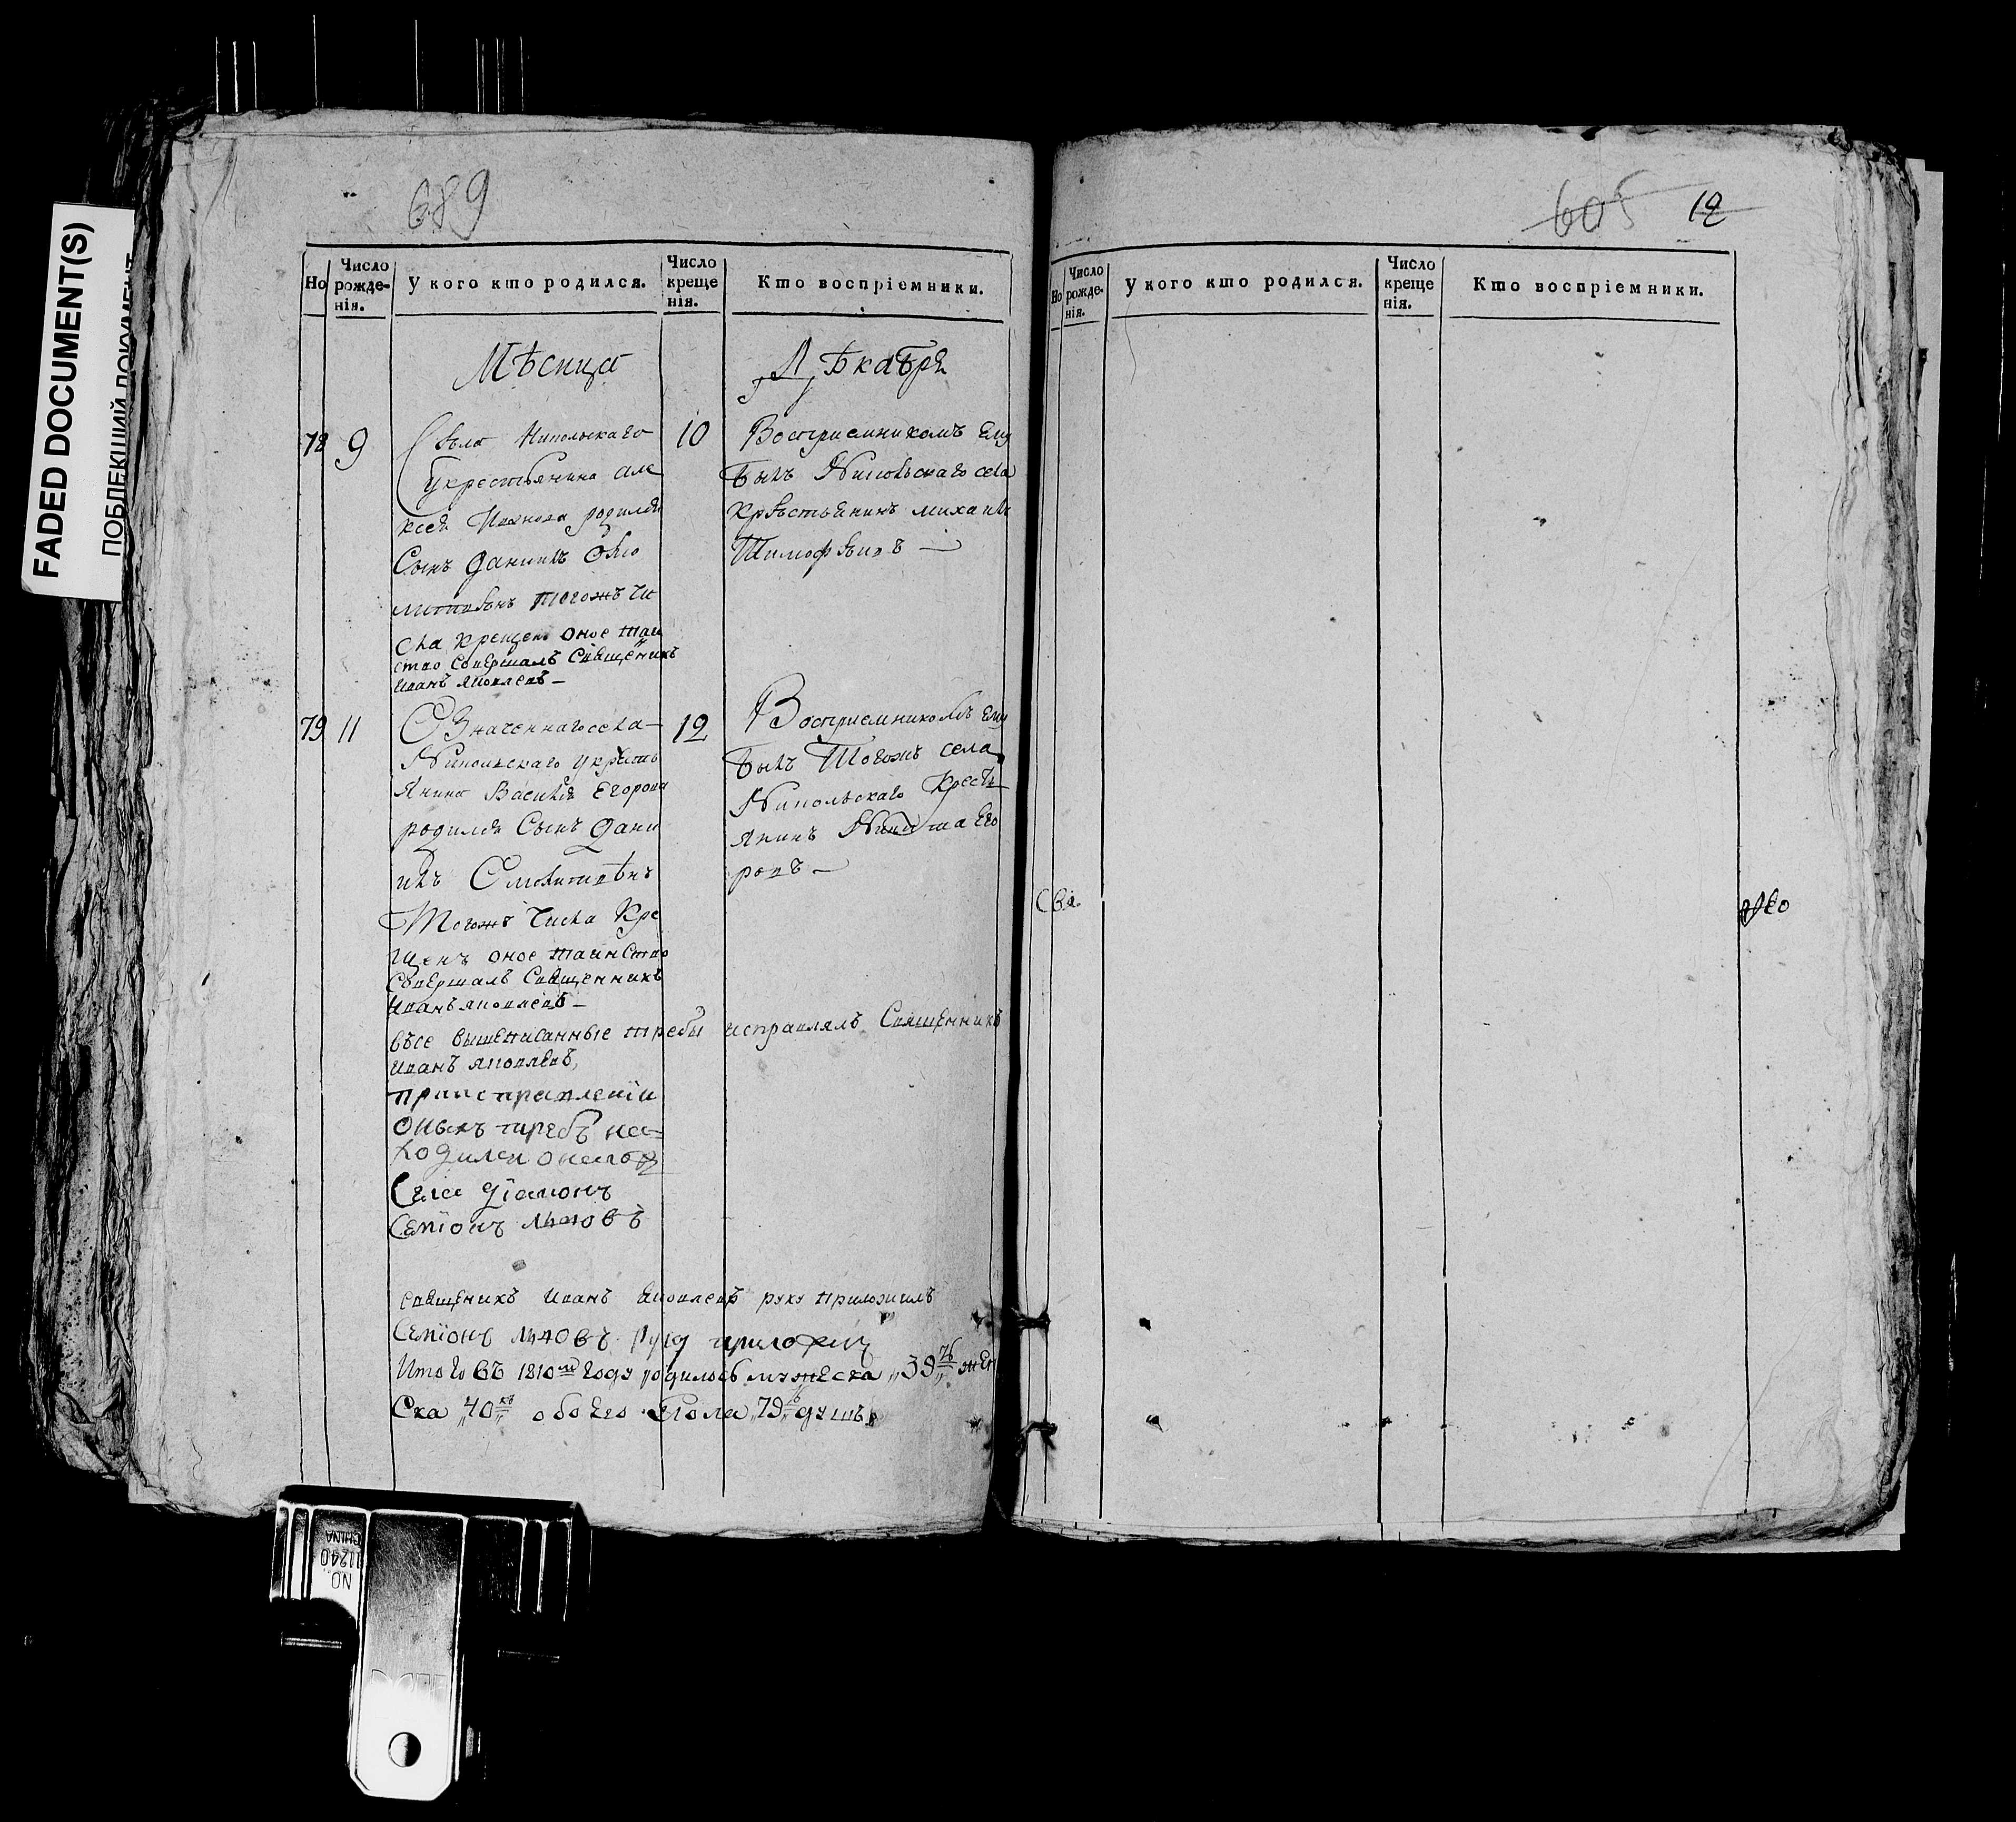 FADED DOCUMENT(S)
ПОБЛЕКШИЙ ДОКУМЕНТ
689
Но
Число рожде-нія.
У кого кто родился.
Число креще нія.
Кто воспріемники.
Мѣсяца
Дѣкабря
78
9
Села Никольскаго
укрестьянина Але
ксея Иванова родился
Сынъ Данилъ
тогожъ чи
сла крещенъ оное таи
ство совершалъ священикъ
иванъ яковлевъ —
10
Восприемникомъ ему
былъ Никольскаго села
крѣстьянинъ михаила
Тимофѣивъ —
79
11
Означеннаго села —
Никольскаго укресть
янина Василья Егорова
родился Сынъ Дани
илъ
Тогожъ числа кре
щенъ оное таинство
совершалъ священникъ
иванъ яковлевъ —
12
Восприемникомъ ему
былъ Тогожъ села
Никольскаго Кресть
янинъ Никита Его
ровъ —
въсе вышеписанные требы исправлялъ Священникъ
иванъ яковлевъ,
приисправленіи
оныхъ требъ на=
ходился онаго
Села діаконъ
Семіонъ
священикъ иванъ яковлевъ руку приложилъ
Семіонъ руку приложилъ
Итого въ 1810мъ году родилось мужеска „39„ жен
Ска „40„ обоего пола „79„ душъ
605 12
Но
Число рожде-нія.
У кого кто родился.
Число креще нія.
Кто воспріемники.
Свя